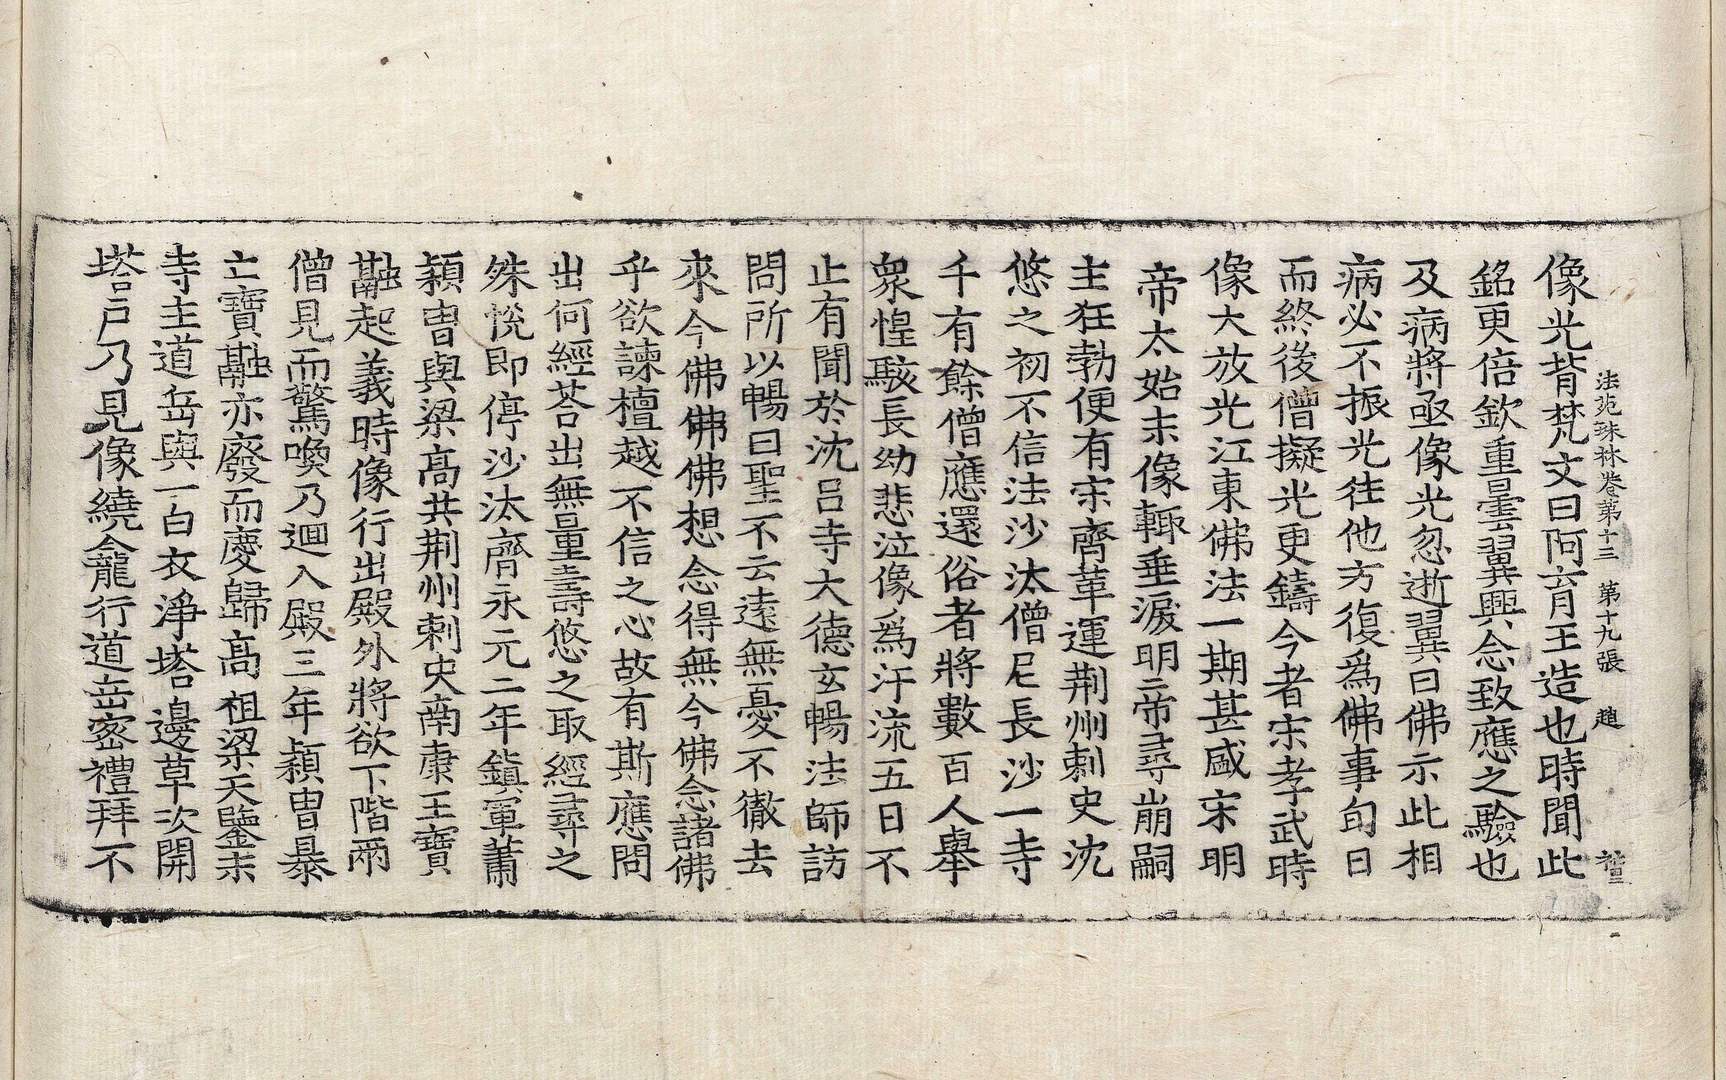 法苑珠林卷第十三 第十九張 趙
像光背梵文曰阿育王造也時聞此
銘更倍欽重曇翼興念致應之驗也
及病將亟像光忽逝翼曰佛示此相
病必不振光往他方復爲佛事旬日
而終後僧擬光更鑄今者宋孝武時
像大放光江東佛法一期甚盛宋明
帝太始末像輙垂淚明帝尋崩嗣
主狂勃便有宋齊革運荆州刺史沈
悠之初不信法沙汰僧尼長沙一寺
千有餘僧應還俗者將數百人舉
衆惶駭長幼悲泣像爲汗流五日不
止有聞於沈召寺大德玄暢法師訪
問所以暢曰聖不云遠無憂不徹去
來今佛佛佛想念得無今佛念諸佛
乎欲諫檀越不信之心故有斯應問
出何經荅出無量壽悠之取經尋之
殊悅即停沙汰齊永元二年鎭軍蕭
穎胄與梁高共荆州刺史南康王寶
融起義時像行出殿外將欲下階兩
僧見而驚喚乃迴入殿三年穎胄暴
亡寶融亦廢而慶歸高祖梁天鑒末
寺主道岳與一白衣淨塔邊草次開
塔戶乃見像繞龕行道岳密禮拜不